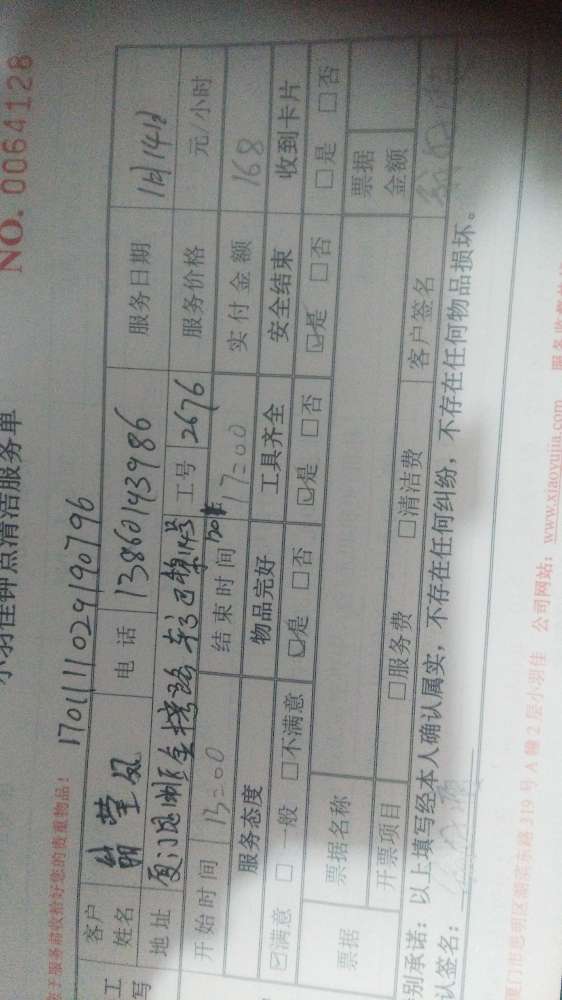 NO. 0064128
小羽佳钟点清洁服务单
您于服务前收拾好您的贵重物品！
1701111029190796
客户姓名 莹凤 电话 13860193986 服务日期 12/14日
地址 厦门思明区 工号 2676 服务价格 元/小时
开始时间 13:00 结束时间 17:00 实付金额 168
服务态度 物品完好 工具齐全 安全结束 收到卡片
☑满意 □一般 □不满意 ☑是 □否 ☑是 □否 ☑是 □否 □是 □否
票据 票据名称 票据金额
开票项目 □服务费 □清洁费 客户签名
别承诺：以上填写经本人确认属实，不存在任何纠纷，不存在任何物品损坏。
认签名：
厦门市思明区湖滨东路319号A幢2层小羽佳 公司网站：www.xiaoyujia.com